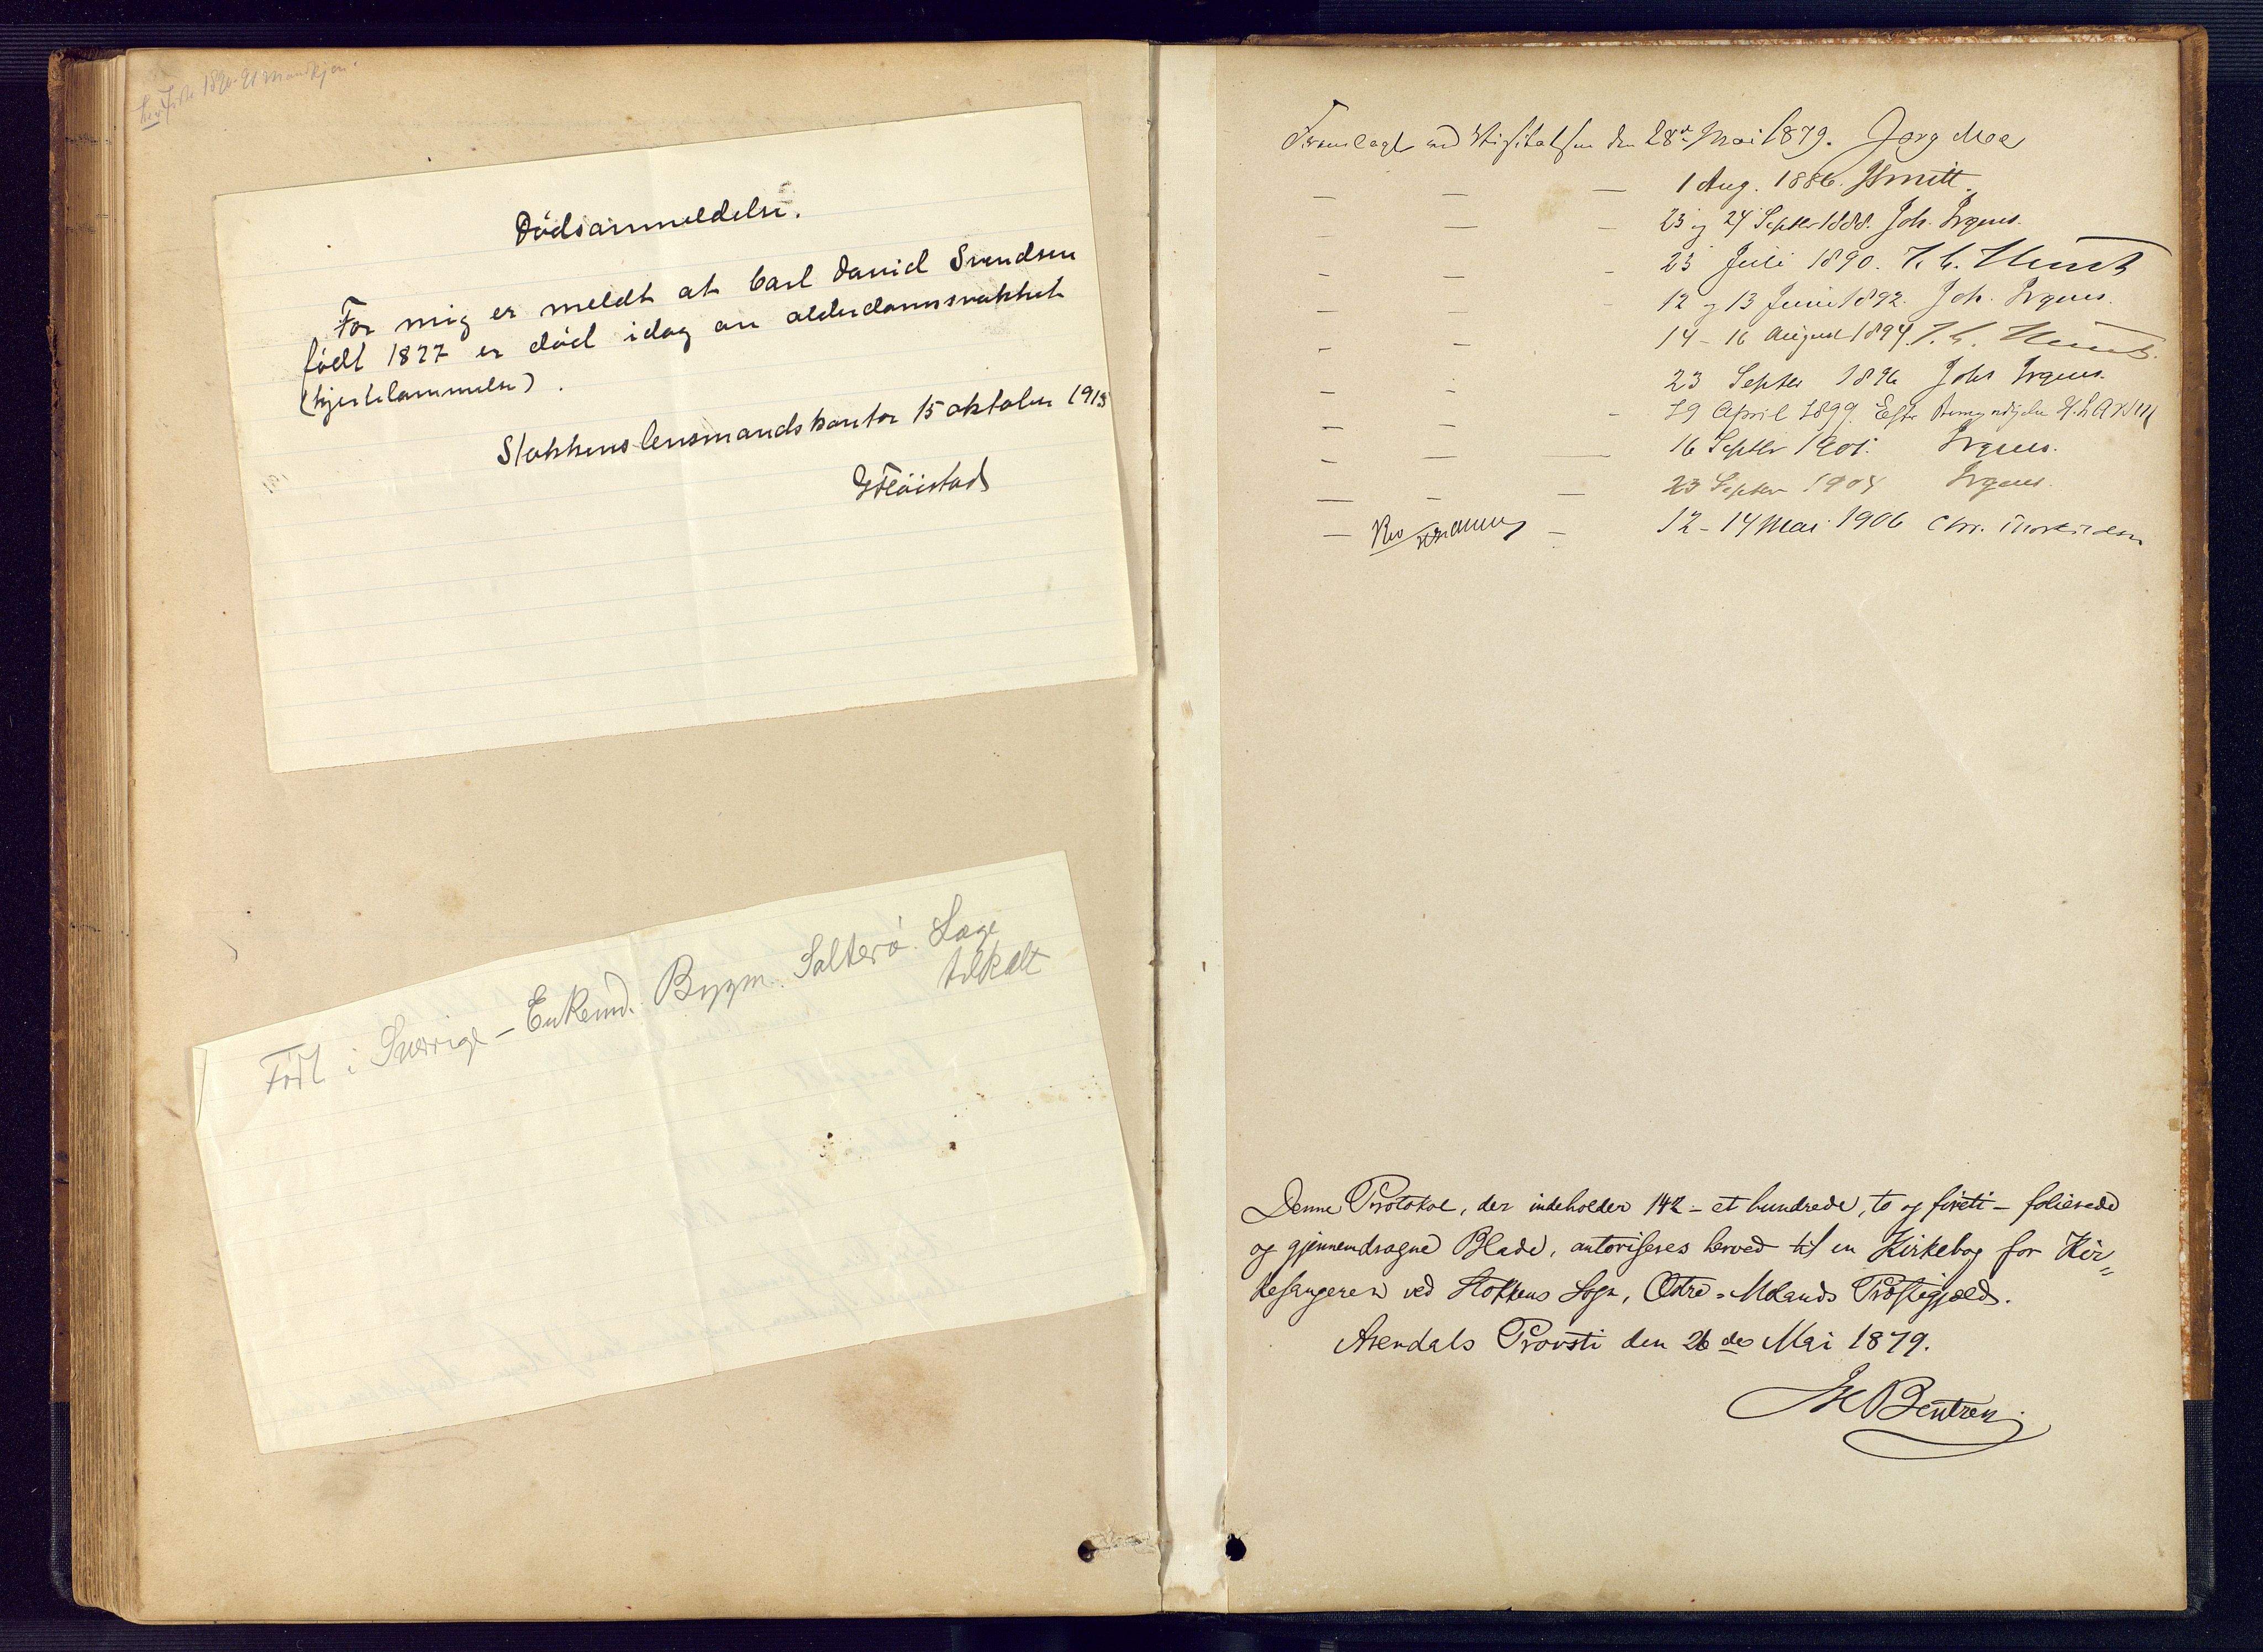 Dödsanmeldelse.
For mig er meldt at Carl David Svendsen
födt 1827 er död idag av alderdomssvakhet
(hjertelammelse).
Stokkens lensmandskontor 15 oktober 1913
Födt i Sverige – Enkemd. Bygm. Salterö. Læge
tilkalt
Fremlagt ved Visitatsen den 28de Mai 1879. Jørg Moe
— — — 1 Aug. 1886. JSmitt.
— — — 23 og 24 Septbr 1888. Joh. Irgens.
— — — 23 Juli 1890.
— — — 12 og 13 Juni 1892. Joh. Irgens.
— — 14 - 16 August 1894.
— — 23 Septbr 1896 Johs Irgens.
— — — 19 April 1899. Efter
— — — 16 Septbr 1901. Irgens.
— — — 23 Septbr 1904 Irgens.
— — 12 - 14 Mai 1906 Chr.
Denne Protokol, der indeholder 142 – et hundrede, to og fireti – folierede
og gjennemdragne Blade, autoriseres herved til en Kirkebog for Kir„
kesangeren ved Stokkens Sogn, Østre-Molands Præstegjæld.
Arendals Provsti den 26de Mai 1879.